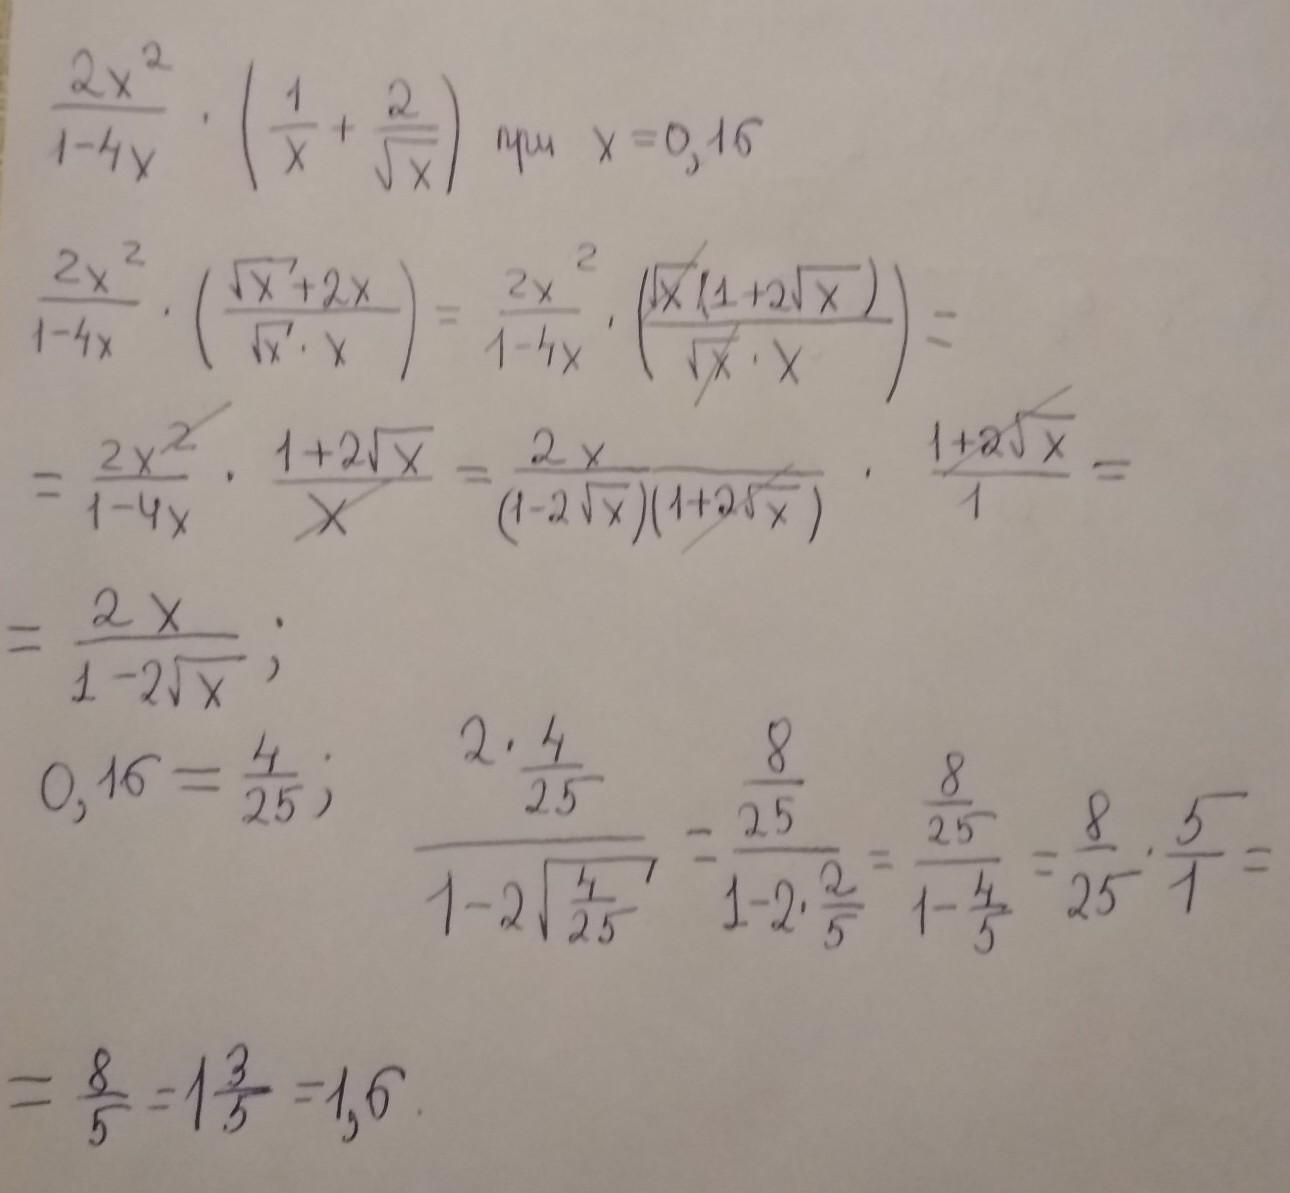 2x²/(1-4x) · (1/x + 2/√x) при x=0,16
2x²/(1-4x) · ((√x+2x)/(√x·x)) = 2x²/(1-4x) · (√x(1+2√x)/(√x·x)) =
= 2x²/(1-4x) · (1+2√x)/x = 2x/((1-2√x)(1+2√x)) · (1+2√x)/1 =
= 2x/(1-2√x);
0,16 = 4/25; (2·4/25)/(1-2√(4/25)) = (8/25)/(1-2·2/5) = (8/25)/(1-4/5) = 8/25 · 5/1 =
= 8/5 = 1 3/5 = 1,6.